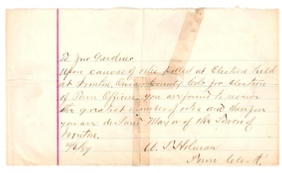 To Jno Gardner
Upon canvass of votes polled at Election held
at Ironton, Ouray County Colo for Election
of Town Officers you are found to receive
the greatest number of votes and therefore
you are declared Mayor of the Town of
Ironton
A. P. Holman
Town Clerk